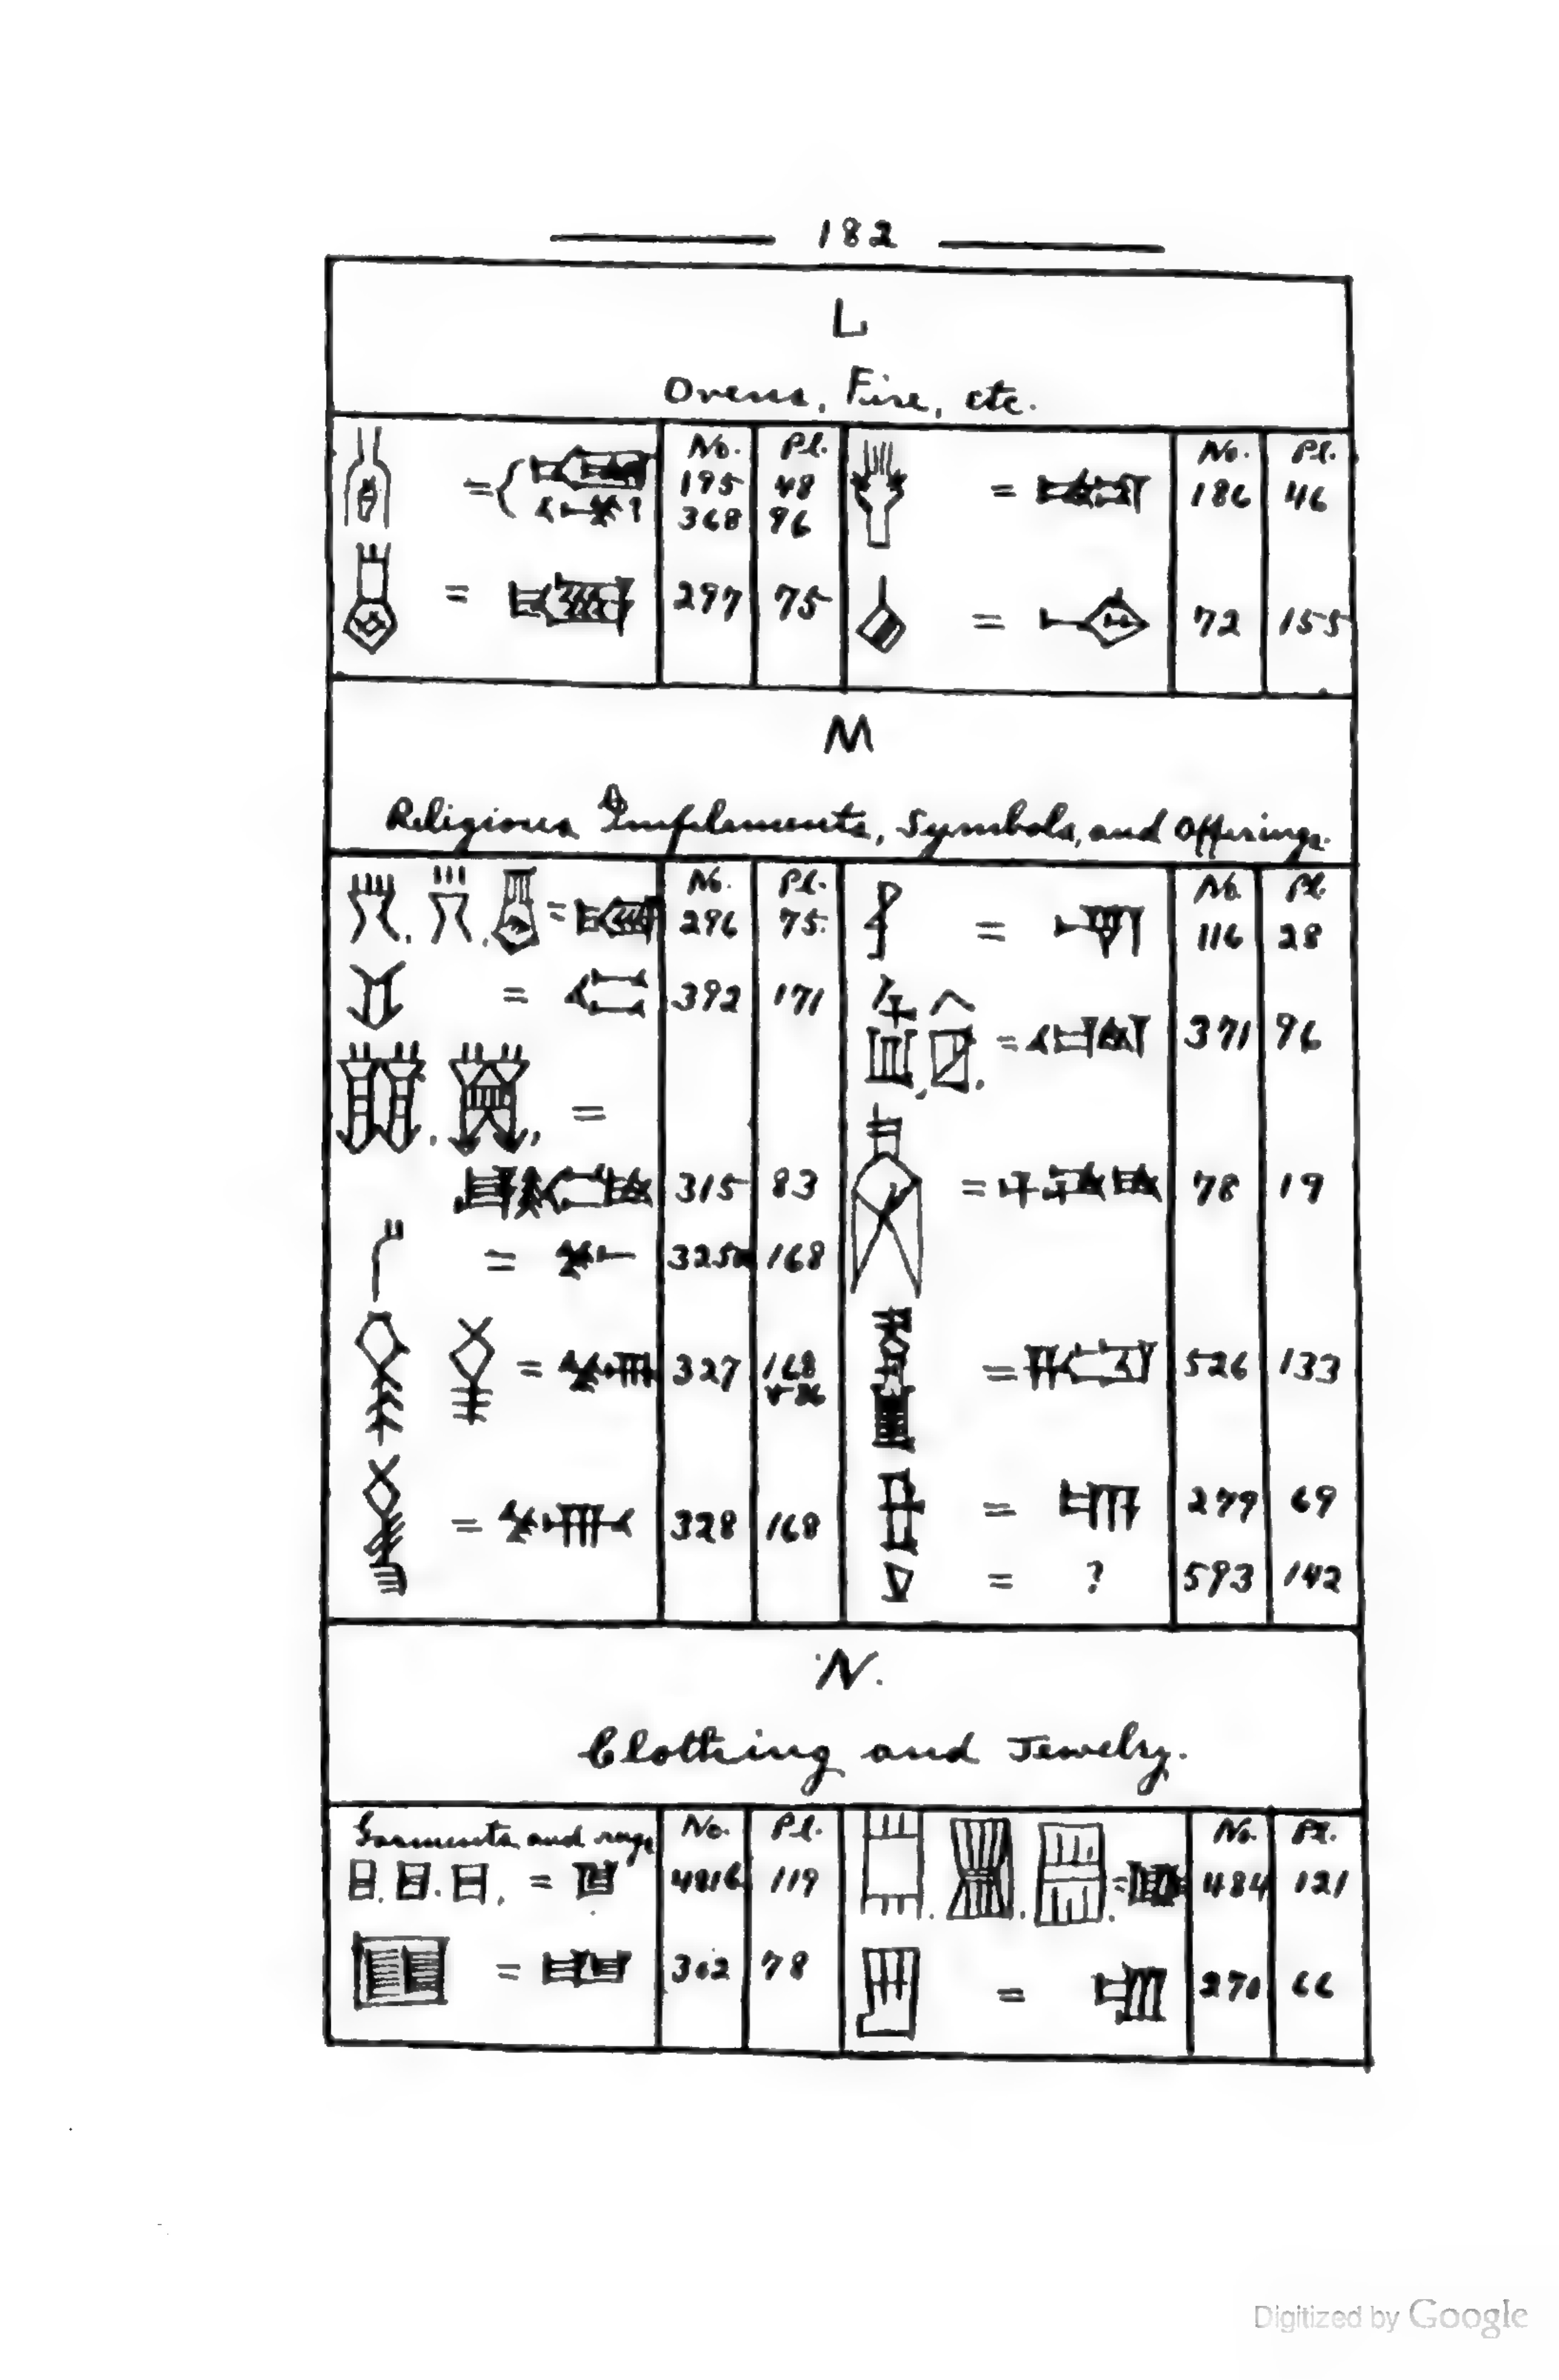 182
L
Ovens, Fire, etc.
No. Pl. No. Pl.
= 195 48 = 186 46
368 96
= 297 75 = 72 155
M
Religious Implements, Symbols, and Offerings.
No. Pl. No. Pl.
= 296 75 = 116 28
= 392 171
= 371 96
=
315 83 = 78 19
= 168
= 327 168 = 526 133
= 328 168 = 279 69
= ? 593 142
N.
Clothing and Jewelry.
Garments and rugs No. Pl. No. Pl.
= 119 = 484 121
= 302 78 = 270 66
Digitized by Google